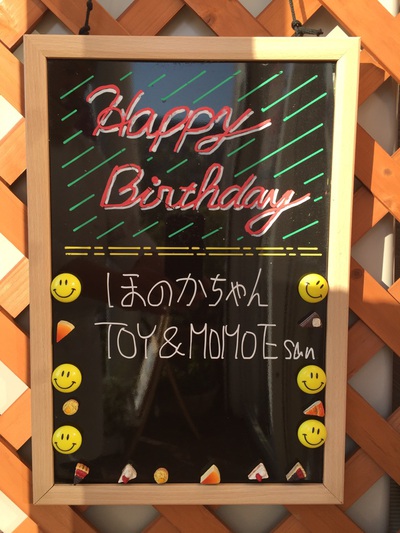 Happy
Birthday
ほのかちゃん
TOY & MOMOE san